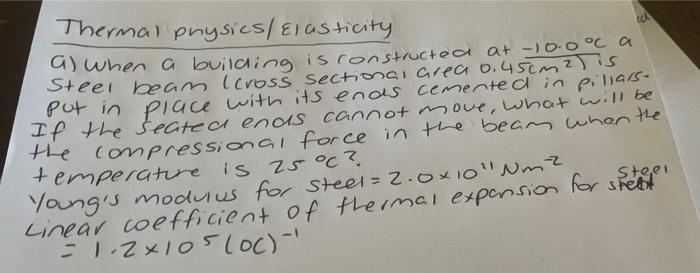 Thermal physics/Elasticity
a) when a building is constructed at -10.0°C a
steel beam (cross sectional area 0.45cm²) is
put in place with its ends cemented in pillars.
If the seated ends cannot move, what will be
the compressional force in the beam when the
temperature is 25°C?
Young's modulus for steel = 2.0x10¹¹ Nm⁻²
Linear coefficient of thermal expansion for steel
= 1.2x10⁵ (0C)⁻¹